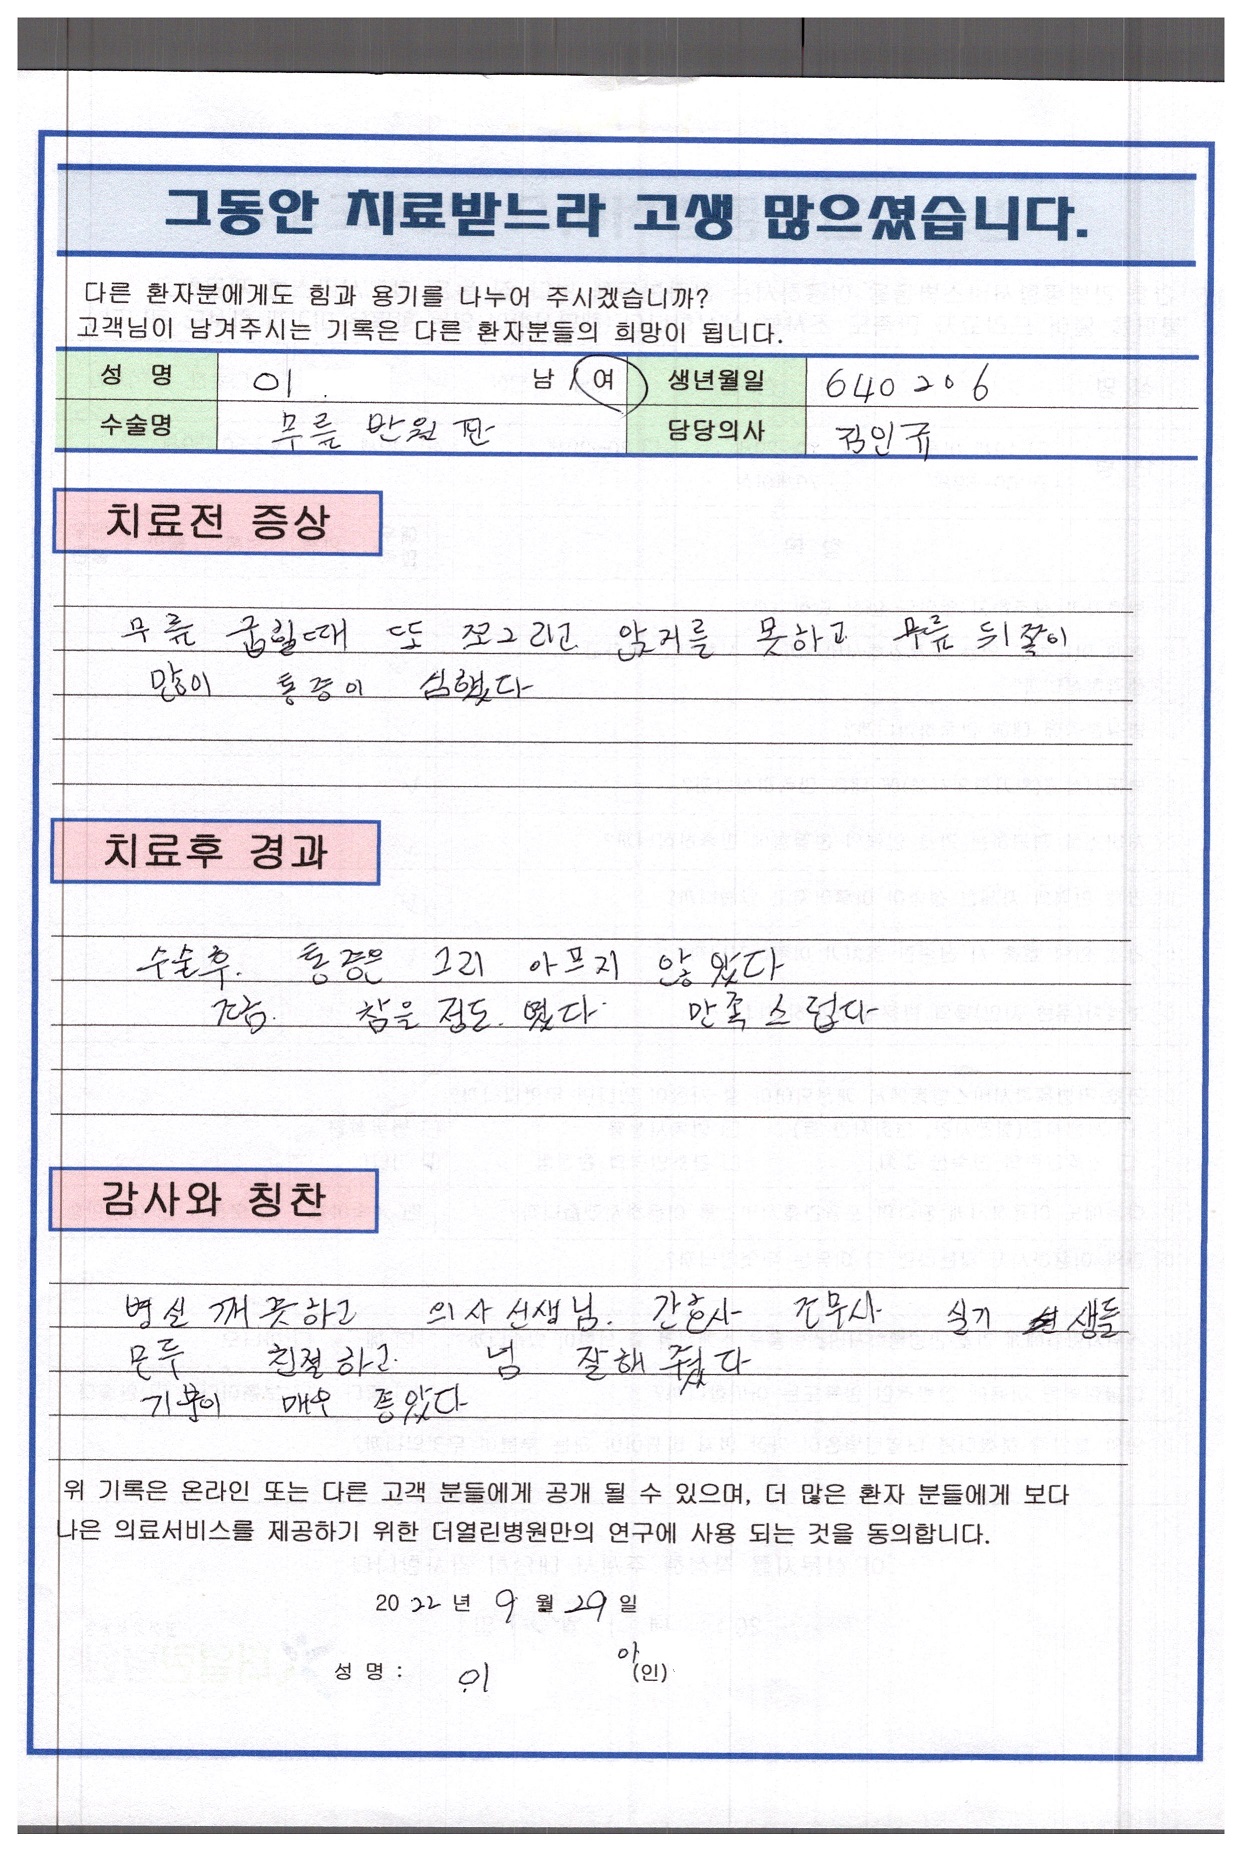 그동안 치료받느라 고생 많으셨습니다.
다른 환자분에게도 힘과 용기를 나누어 주시겠습니까?
고객님이 남겨주시는 기록은 다른 환자분들의 희망이 됩니다.
성 명 이 남 / 여 생년월일 640206
수술명 무릎 반월판 담당의사 김인규
치료전 증상
무릎 굽힐때 또 쪼그리고 앉지를 못하고 무릎 뒤쪽이
많이 통증이 심했다
치료후 경과
수술후. 통증은 그리 아프지 않았다
조금. 참을 정도. 였다. 만족스럽다
감사와 칭찬
병실 깨끗하고 의사선생님. 간호사 조무사 실기 생들
모두 친절하고. 넘 잘해줬다
기분이 매우 좋았다
위 기록은 온라인 또는 다른 고객 분들에게 공개 될 수 있으며, 더 많은 환자 분들에게 보다
나은 의료서비스를 제공하기 위한 더열린병원만의 연구에 사용 되는 것을 동의합니다.
2022 년 9 월 29 일
성 명 : 이 (인)